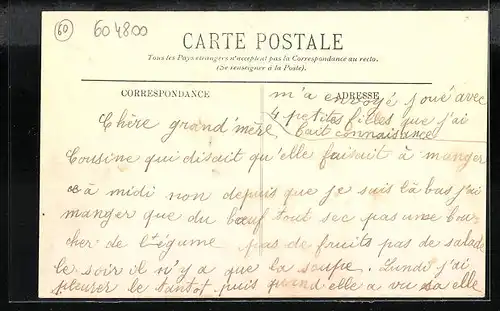 60
604800
CARTE POSTALE
Tous les Pays étrangers n'acceptent pas la Correspondance au recto.
(Se renseigner à la Poste).
CORRESPONDANCE
ADRESSE
m'a envoyé joué avec
4 petites filles que j'ai
fait connaisance
Chère grand'mère
Cousine qui disait qu'elle faisait à manger
à midi non depuis que je suis là bas j'ai
manger que du bœuf tout sec pas une bou-
cher de légume pas de fruits pas de salade
le soir il n'y a que la soupe. Lundi j'ai
pleurer le tantot puis quand elle a vu sa elle